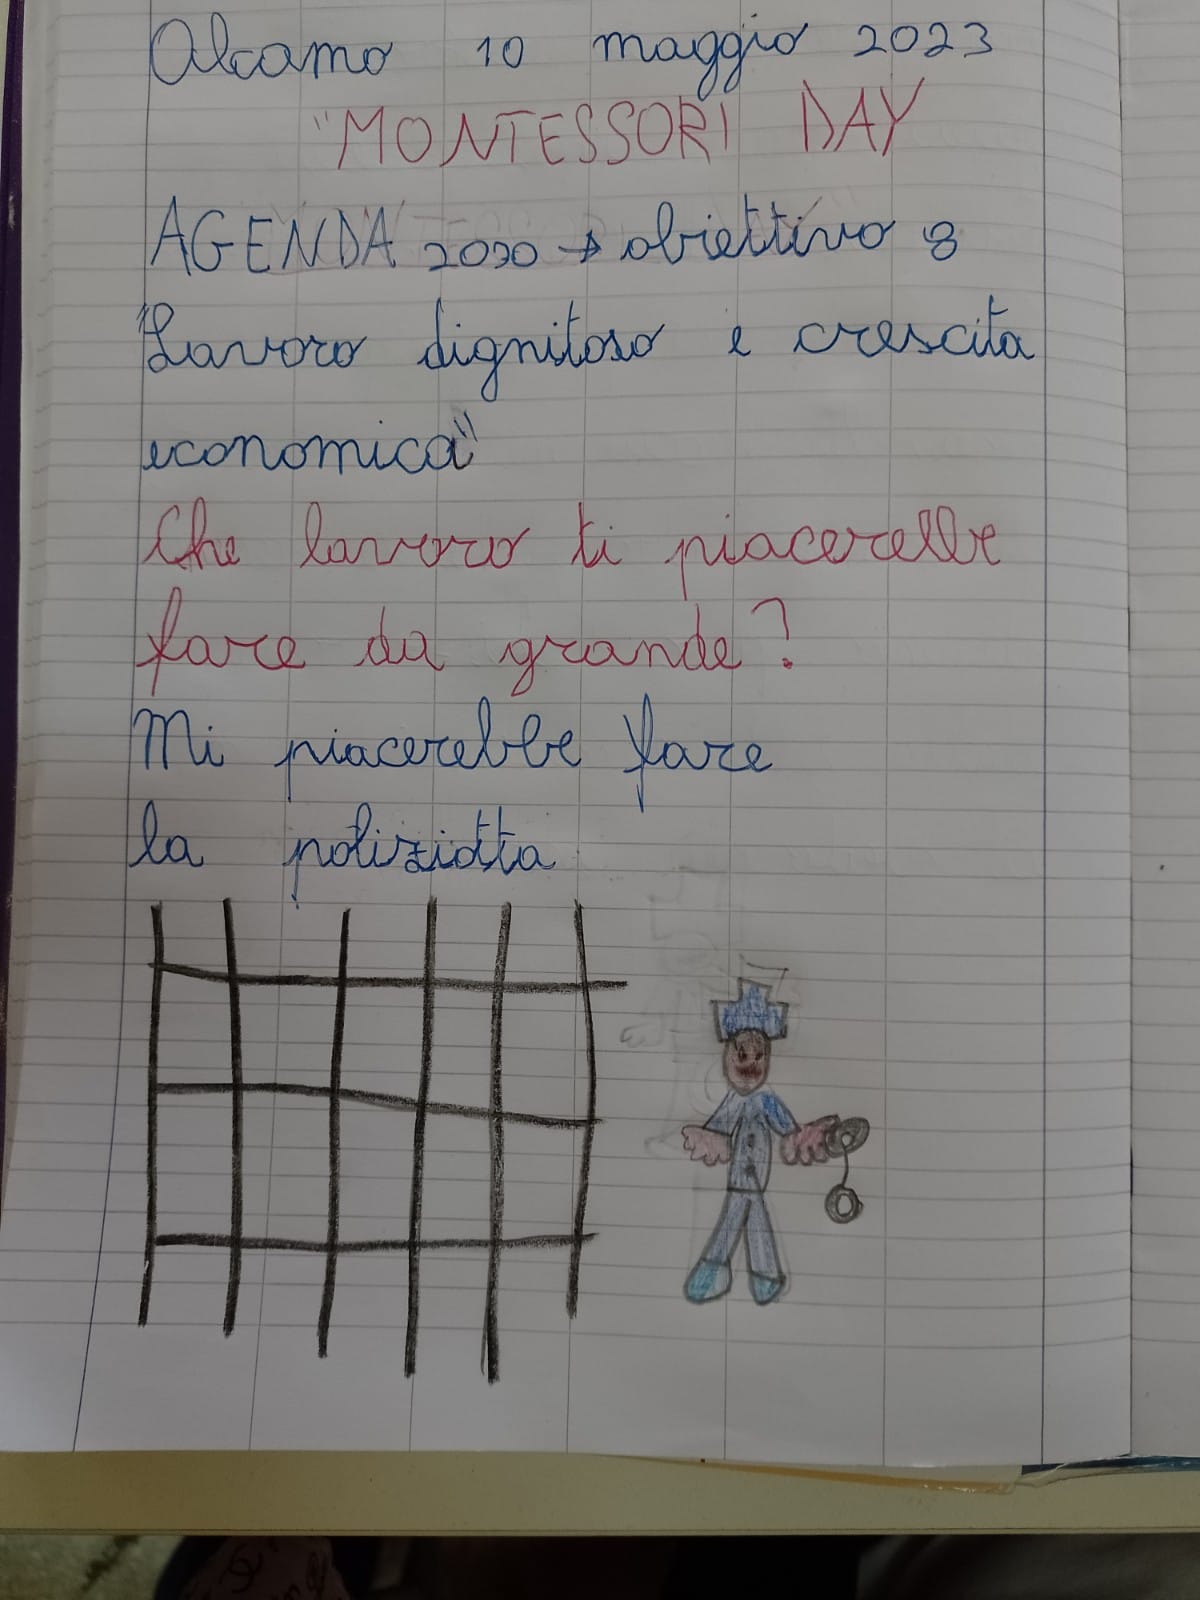 Alcamo 10 maggio 2023
"MONTESSORI DAY
AGENDA 2030 → obiettivo 8
"Lavoro dignitoso e crescita
economica"
Che lavoro ti piacerebbe
fare da grande?
Mi piacerebbe fare
la poliziotta